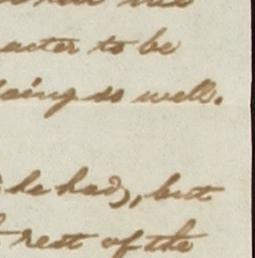 acter to be
doing so well.
he had, but
rest of the